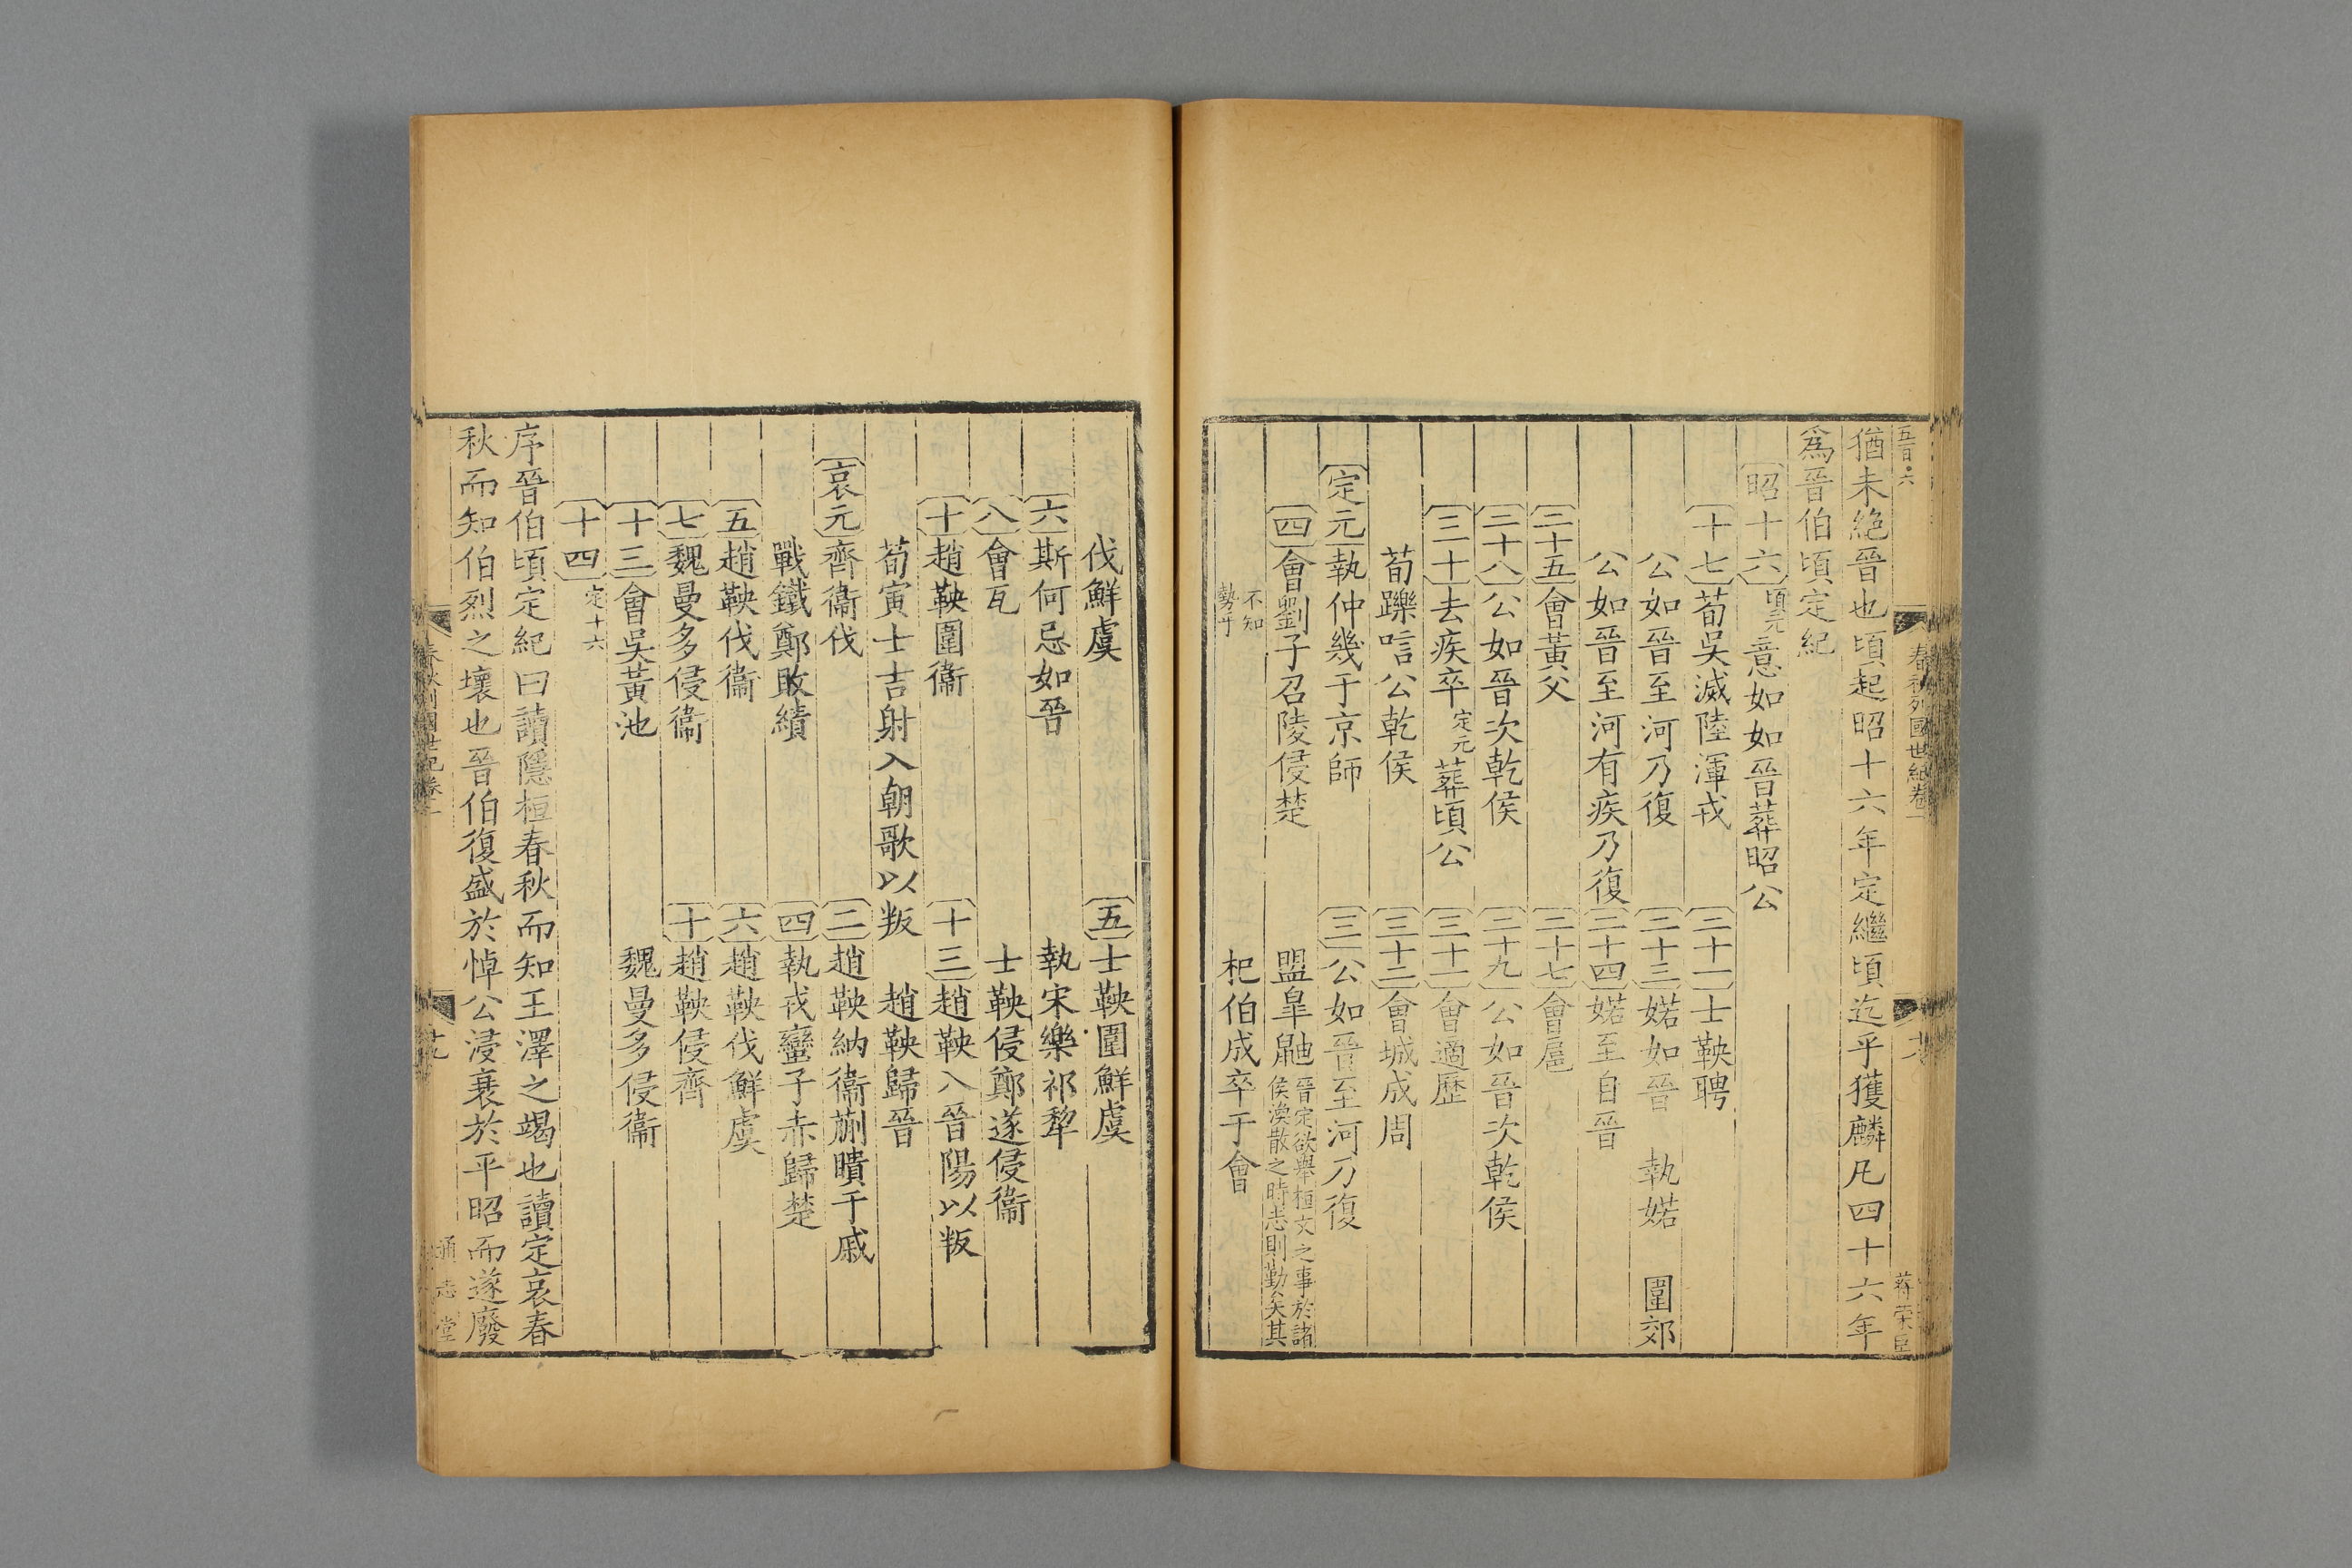 五百六
春秋列國世紀卷一
十八
蔣榮臣
猶未絶晉也頃起昭十六年定繼頃迄乎獲麟凡四十六年
爲晉伯頃定紀
昭十六頃元意如如晉葬昭公
十七荀吳滅陸渾戎 二十一士鞅聘
公如晉至河乃復 二十三婼如晉 執婼 圍郊
公如晉至河有疾乃復 二十四婼至自晉
二十五會黃父 二十七會扈
二十八公如晉次乾侯 二十九公如晉次乾侯
三十去疾卒定元葬頃公 三十一會適歷
荀躒唁公乾侯 三十二會城成周
定元執仲幾于京師 三公如晉至河乃復
四會劉子召陵侵楚 盟皐鼬晉定欲舉桓文之事於諸
侯渙散之時志則勤矣其
不知
勢乎 杞伯成卒于會
伐鮮虞 五士鞅圍鮮虞
六斯何忌如晉 執宋樂祁犂
八會瓦 士鞅侵鄭遂侵衞
十趙鞅圍衞 十三趙鞅入晉陽以叛
荀寅士吉射入朝歌以叛 趙鞅歸晉
哀元齊衞伐 二趙鞅納衞蒯聵于戚
戰鐵鄭敗績 四執戎蠻子赤歸楚
五趙鞅伐衞 六趙鞅伐鮮虞
七魏曼多侵衞 十趙鞅侵齊
十三會吳黃池 魏曼多侵衞
十四定十六
序晉伯頃定紀曰讀隱桓春秋而知王澤之竭也讀定哀春
秋而知伯烈之壞也晉伯復盛於悼公浸衰於平昭而遂廢
春秋列國世紀卷一
十九
通志堂